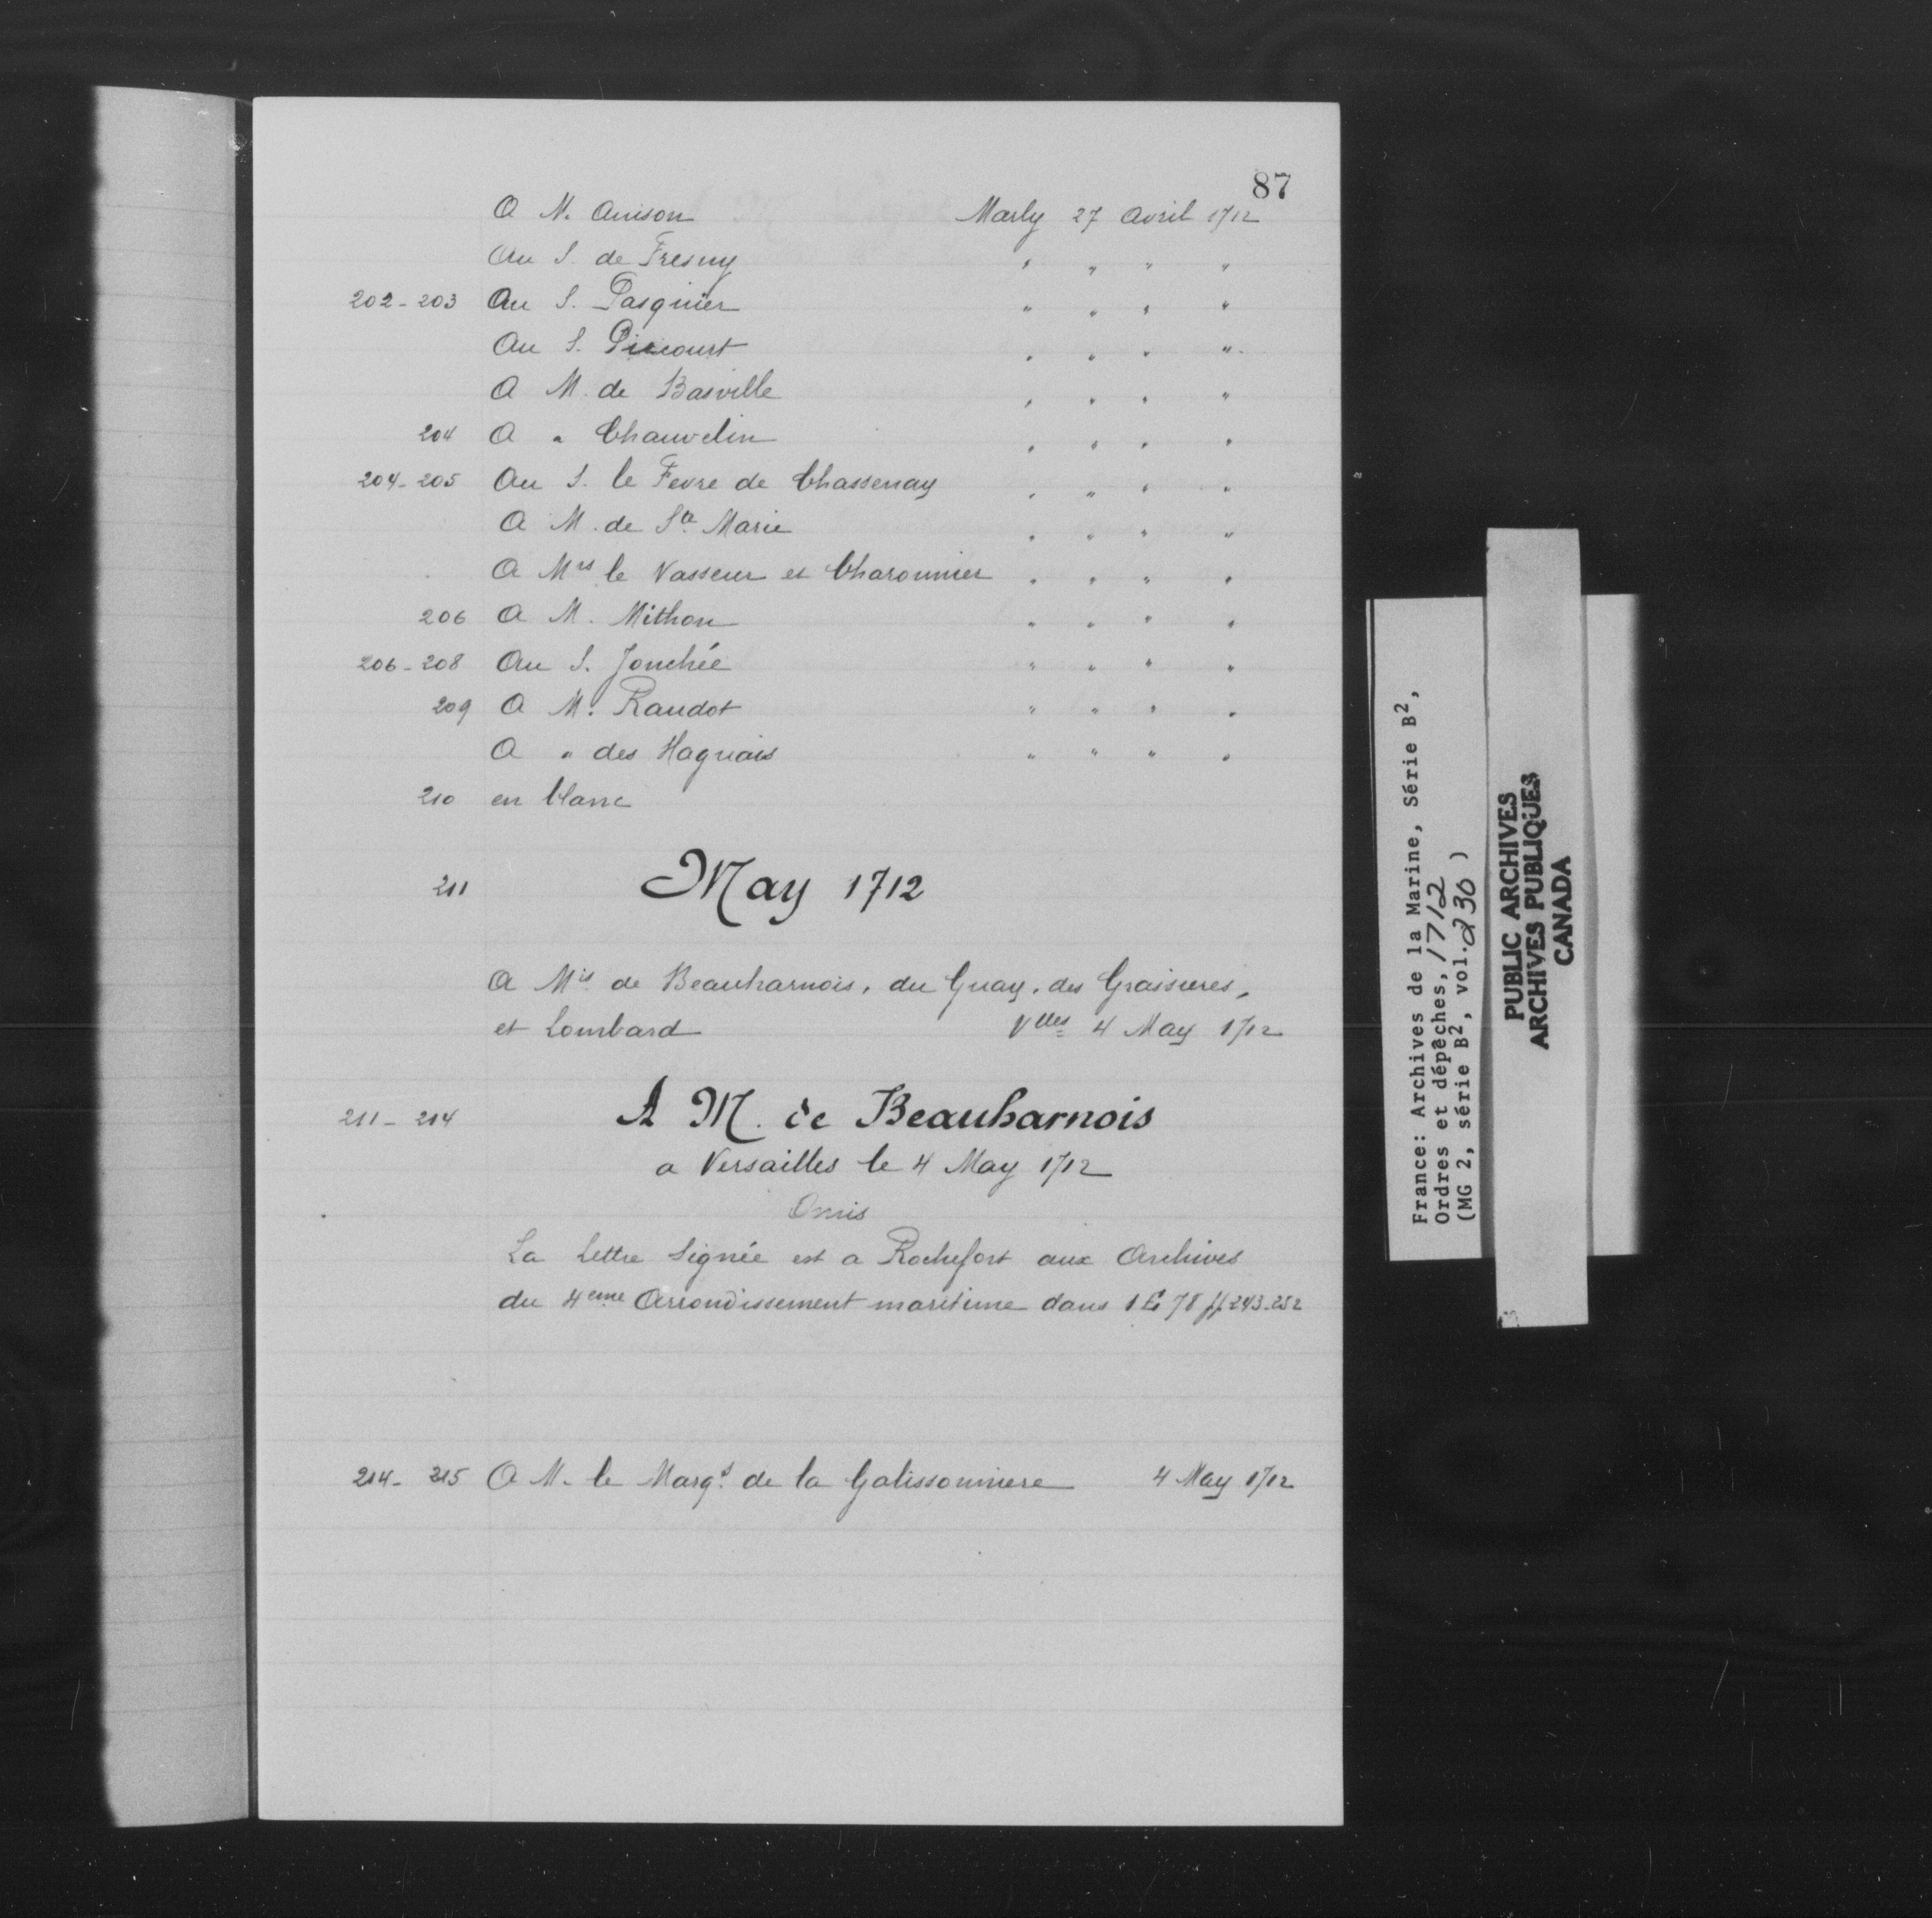 87
A M. Anison Marly 27 Avril 1712
Au S. de Fresny " " " "
202-203 Au S. Pasquier " " " "
Au S. Piecourt " " " "
A M. de Basville " " " "
204 A " Chauvelin " " " "
204-205 Au S. le Fevre de Chassenay " " " "
A M. de Ste Marie " " " "
A Mrs le Vasseur et Charonnier " " " "
206 A M. Mithon " " " "
206-208 Au S. Jonchée " " " "
209 A M. Raudot " " " "
A " des Haguais " " " "
210 en blanc
211 May 1712
A Mrs de Beauharnois, du Guay, des Graissieres,
et Lombard Vlles 4 May 1712
211-214 A M. de Beauharnois
a Versailles le 4 May 1712
Omis
La lettre signée est a Rochefort aux Archives
du 4eme Arrondissement maritime dans 1 E 78 ff. 243-252
214-215 A M. le Marqs de la Galissonniere 4 May 1712
France: Archives de la Marine, Série B2,
Ordres et dépêches, 1712
(MG 2, série B2, vol. 230)
PUBLIC ARCHIVES
ARCHIVES PUBLIQUES
CANADA